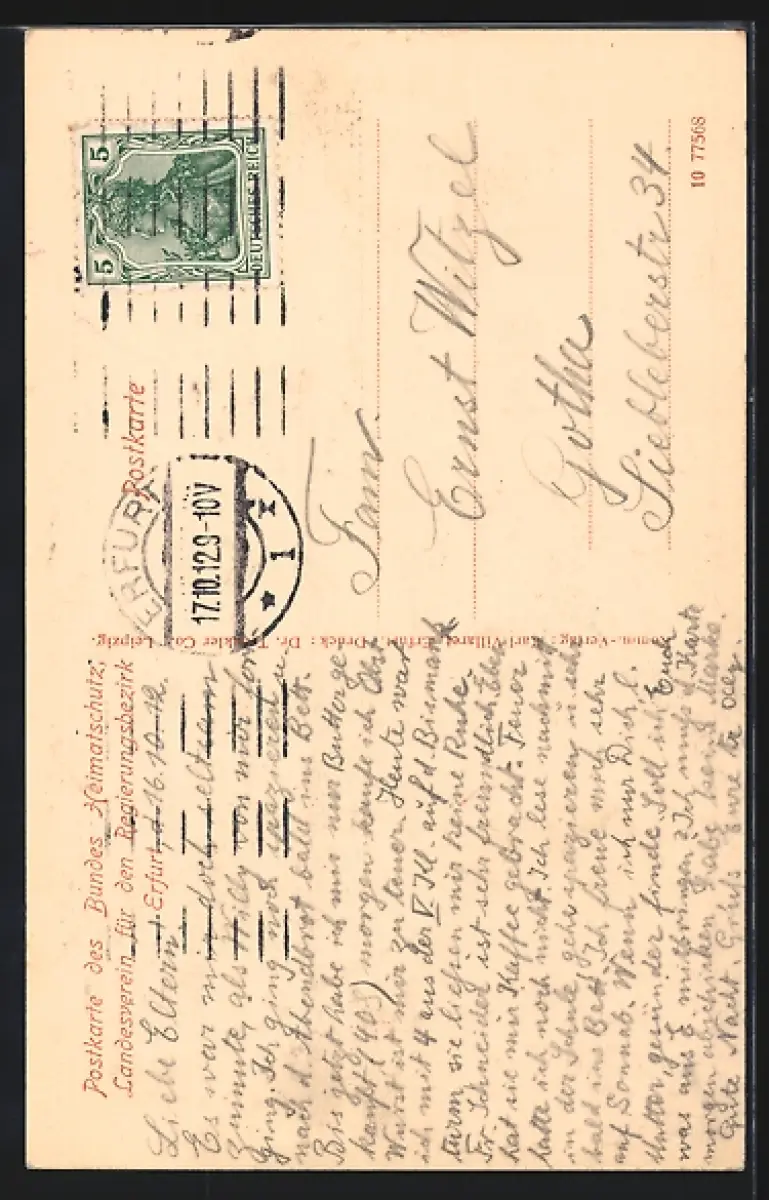 Postkarte des Bundes Heimatschutz,
Landesverein für den Regierungsbezirk
Erfurt, d. 16.10.12.
Liebe Eltern!
Es war mir doch seltsam
zumute, als Willy von mir fort
ging. Ich ging noch spazieren u.
nach d. Abendbrot bald ins Bett.
Bis jetzt habe ich mir nur Butter ge
kauft (40 ₰) morgen kaufe ich Obst
Wurst ist mir zu teuer. Heute war
ich mit 4 aus der auf d. Bismarck
turm, sie ließen mir keine Ruhe.
Fr. Schneider ist sehr freundlich. Eben
hat sie mir Kaffee gebracht. Feuer
hatte ich noch nicht. Ich lese nachmitt
in der Schule, gehe spazieren u. sehr
bald ins Bett. Ich freue mich sehr
auf Sonnab. Wenn ich nur Dich, l.
Mutter, gesünder finde. Soll ich Euch
was aus E. mitbringen? Ich muß d. Karte
morgen abschicken, habe keine Marke.
Gute Nacht. Gruß Eure tr.
Komm.-Verlag: Karl Villaret, Erfurt. Druck: Dr. Trenkler Co., Leipzig.
Postkarte
5 5
DEUTSCHES REICH
ERFURT
17.10.12.9-10V
* 1
Fam.
Ernst Witzel
Gotha
Siebleberstr 34
10 77568